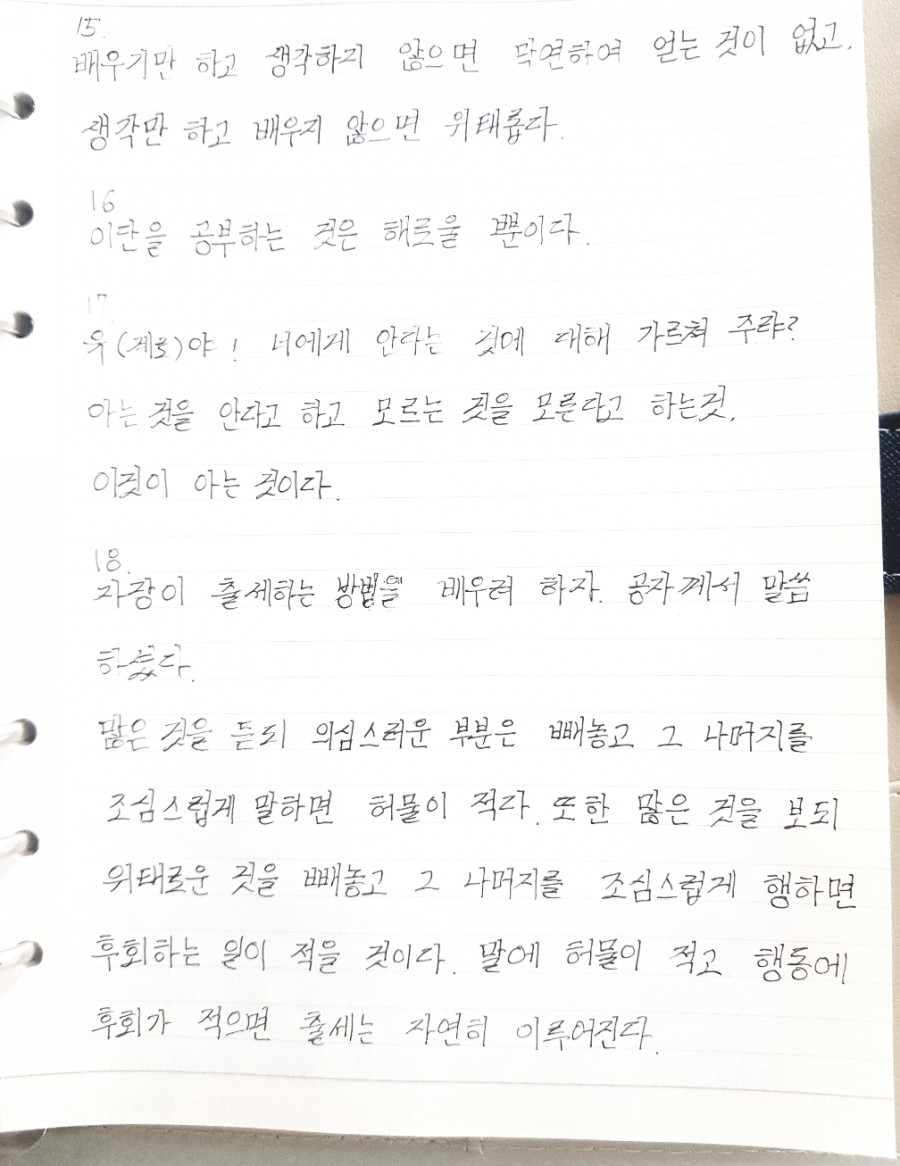 15.
배우기만 하고 생각하지 않으면 막연하여 얻는 것이 없고,
생각만 하고 배우지 않으면 위태롭다.
16
이단을 공부하는 것은 해로울 뿐이다.
17.
유(계로)야! 너에게 안다는 것에 대해 가르쳐 주랴?
아는 것을 안다고 하고 모르는 것을 모른다고 하는것,
이것이 아는 것이다.
18.
자장이 출세하는 방법을 배우려 하자. 공자께서 말씀
하셨다.
많은 것을 듣되 의심스러운 부분은 빼놓고 그 나머지를
조심스럽게 말하면 허물이 적다. 또한 많은 것을 보되
위태로운 것을 빼놓고 그 나머지를 조심스럽게 행하면
후회하는 일이 적을 것이다. 말에 허물이 적고 행동에
후회가 적으면 출세는 자연히 이루어진다.